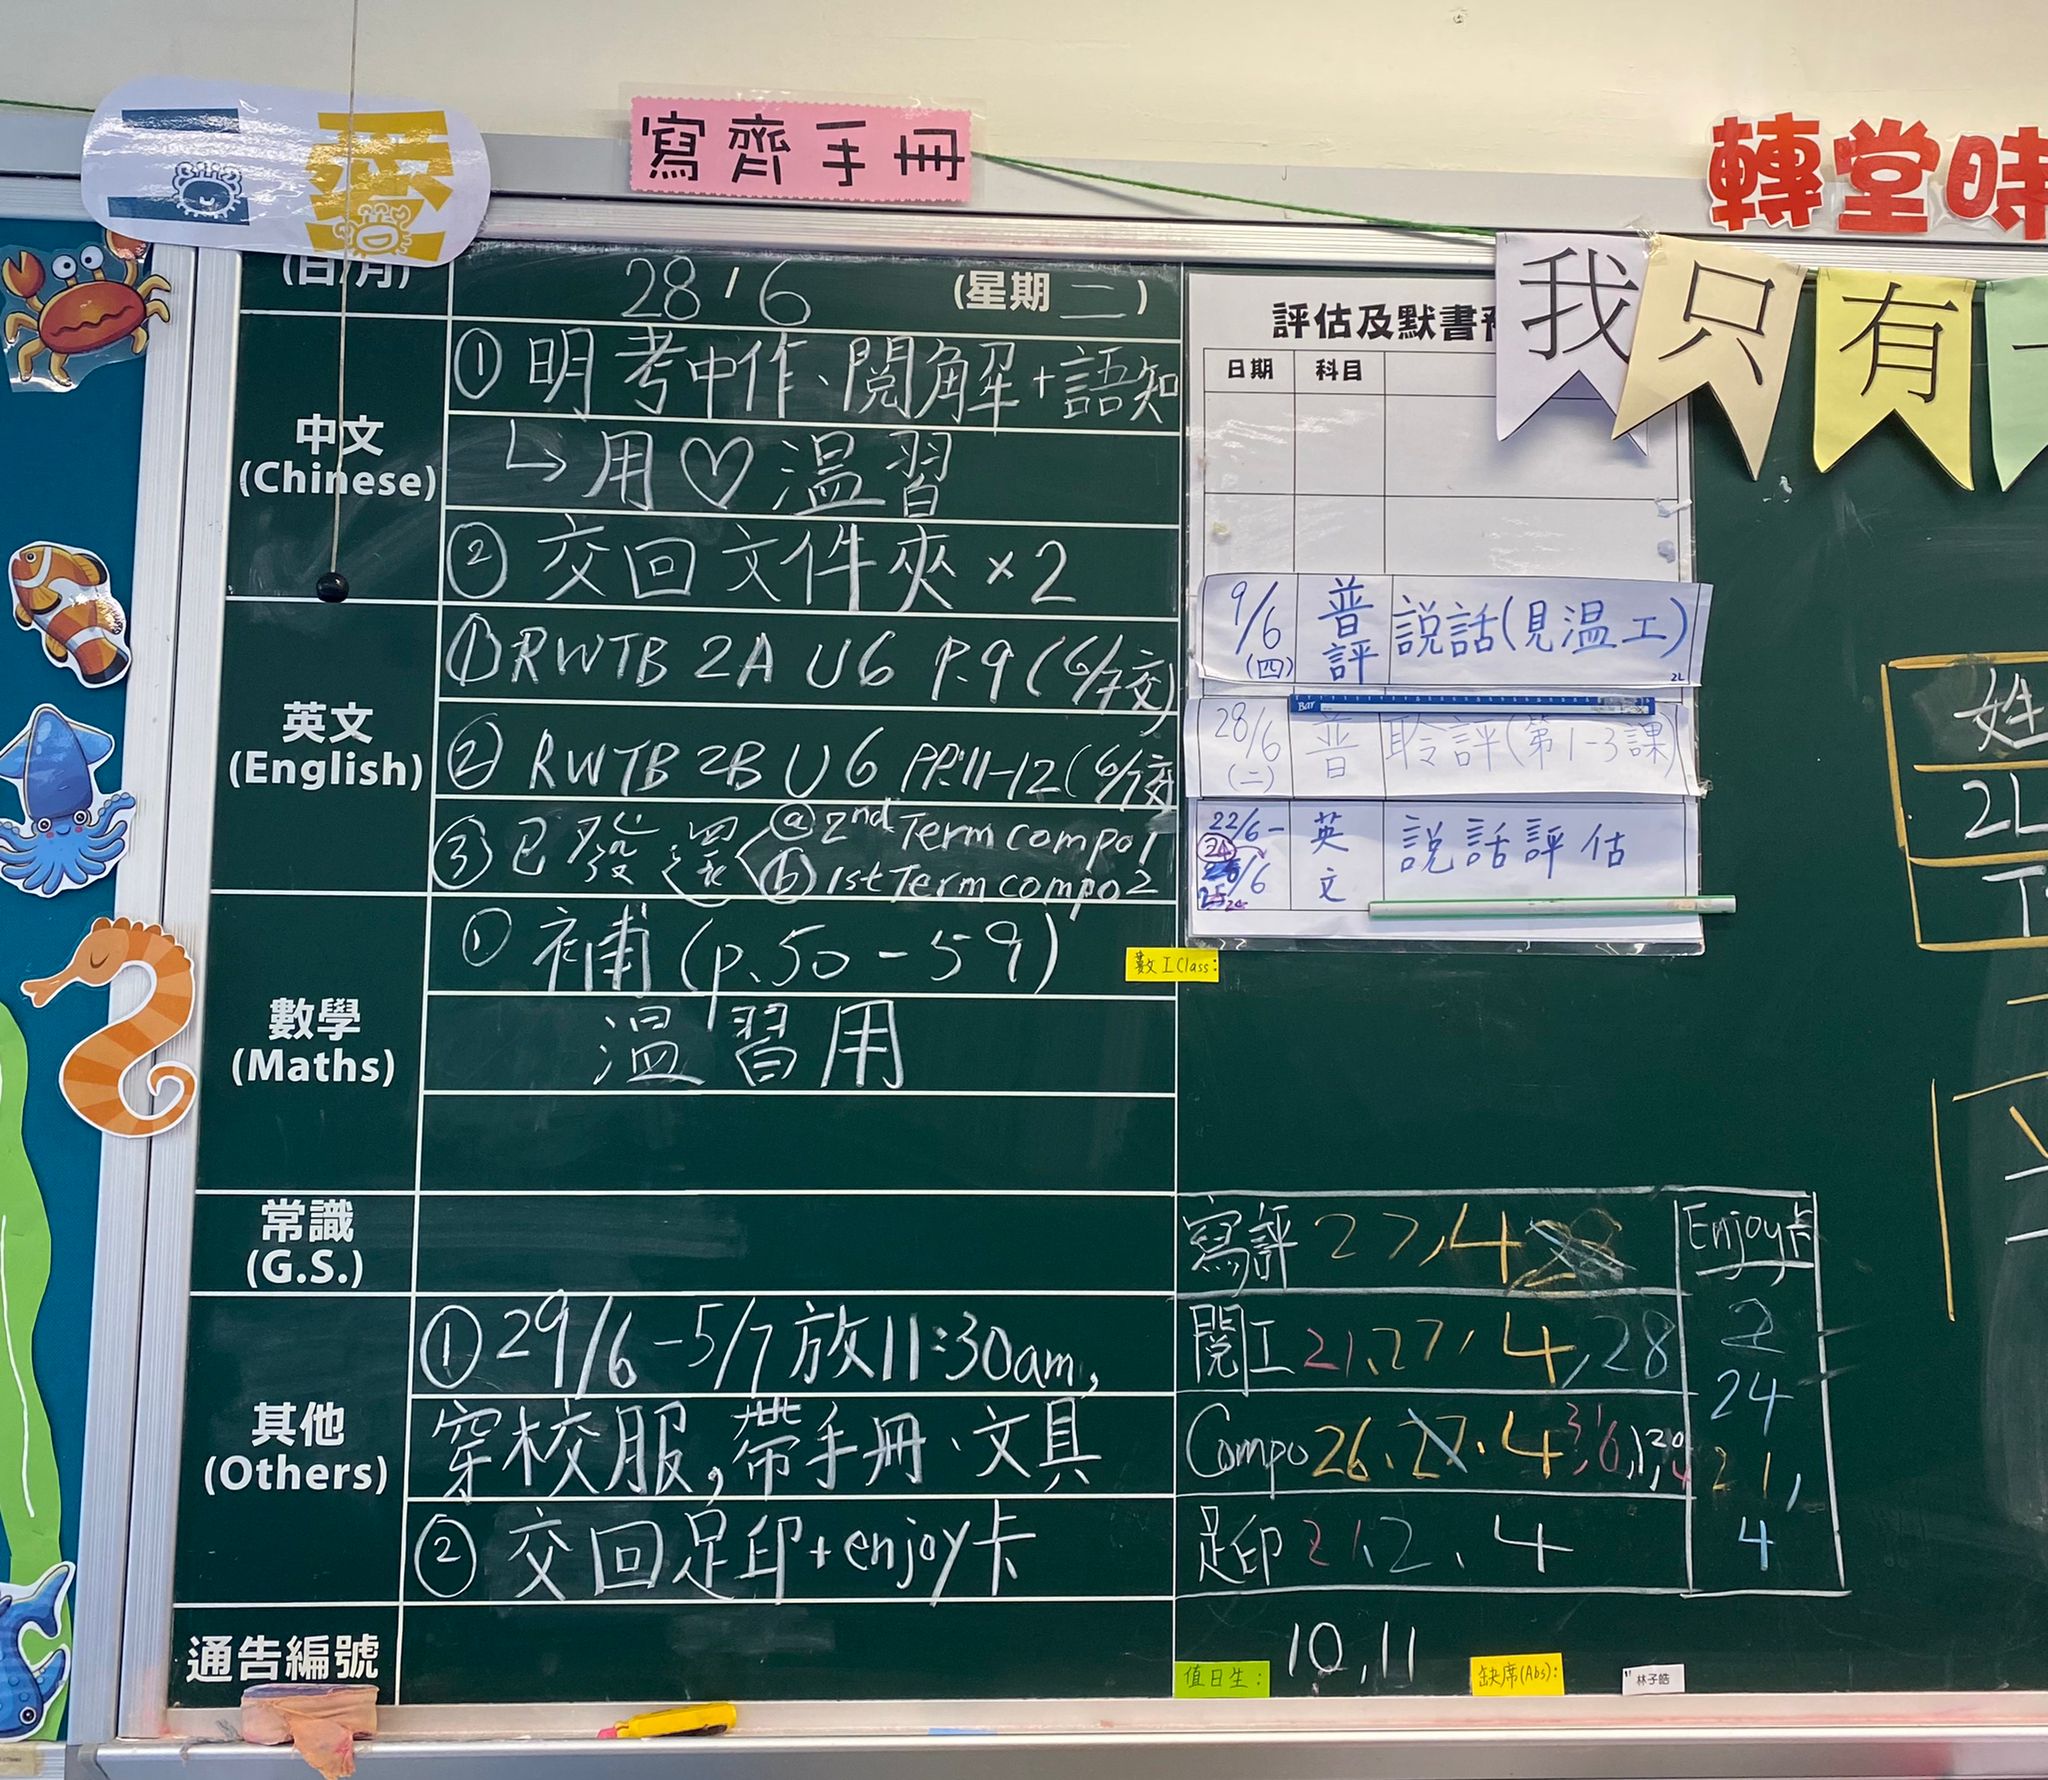 二愛
寫齊手冊
轉堂時
我只有一
(日/月)
28/6
(星期二)
中文
(Chinese)
① 明考中作、閱解+語知
↳用♡溫習
② 交回文件夾×2
英文
(English)
① RWTB 2A U6 P.9 (6/7交)
② RWTB 2B U6 PP.11-12 (6/7交)
③ 已發還 ⓐ 2nd Term compo 1
ⓑ 1st Term compo 2
數學
(Maths)
① 補 (p.50-59)
溫習用
常識
(G.S.)
其他
(Others)
① 29/6-5/7放11:30am,
穿校服,帶手冊、文具
② 交回足印+enjoy卡
通告編號
評估及默書
日期 科目
9/6 (四) 普評 説話(見温工)
2L
Bar
28/6 (二) 普 聆評(第1-3課)
22/6- 24/6 英文 説話評估
數工Class:
姓
2L
寫評 27,4
閱工 21,27,4,28
Compo 26.27.4 3,6,1,20
足印 21,2、4
Enjoy卡
2
24
21,
4
值日生: 10,11
缺席(Abs):
林子皓